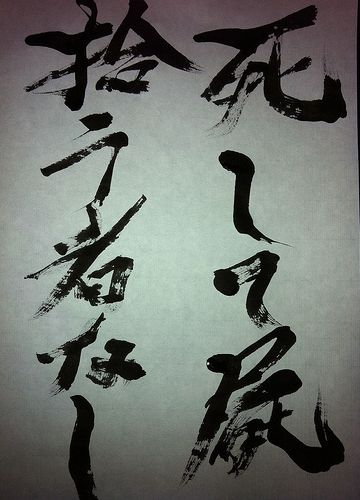 死して屍
拾う者なし